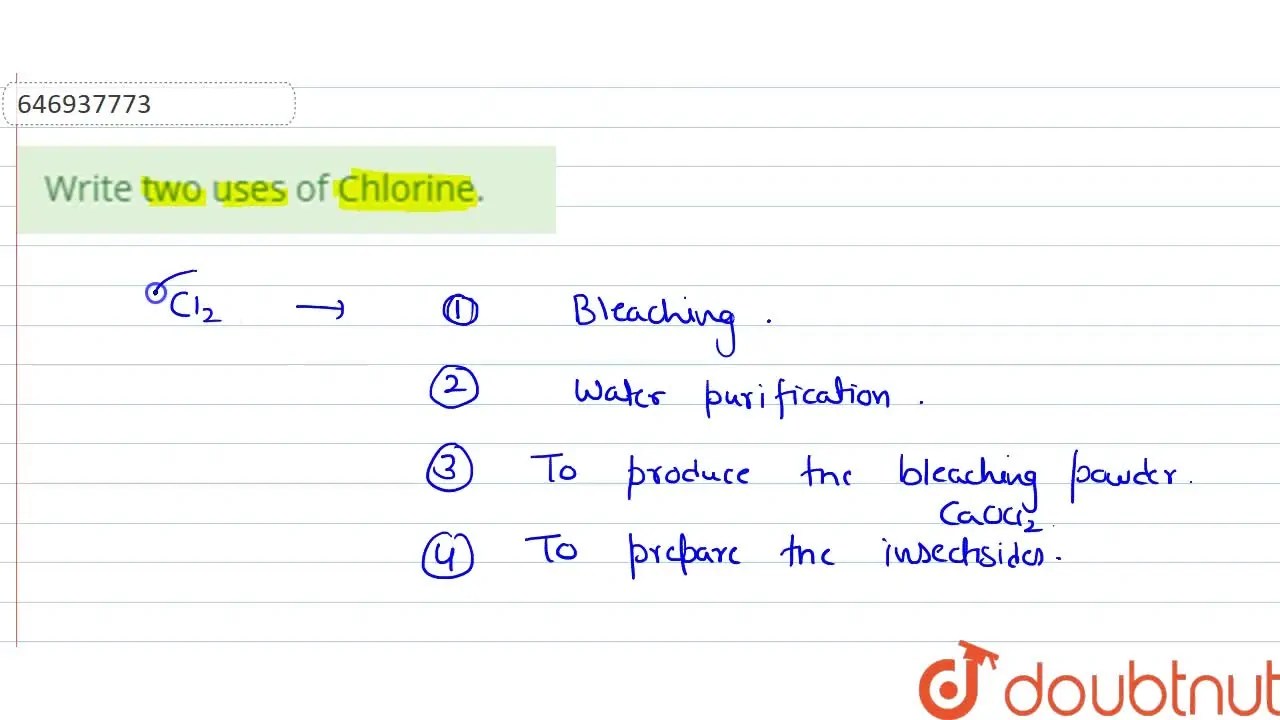 646937773
Write two uses of Chlorine.
Cl2 → ① Bleaching.
② Water purification.
③ To produce the bleaching powder.
CaOCl2.
④ To prepare the insectsides.
doubtnut